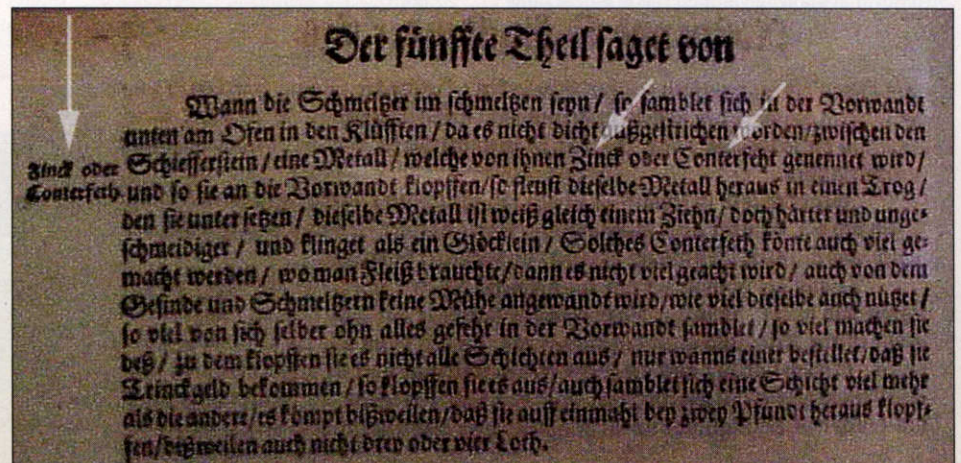 Der fünffte Theil saget von
Wann die Schmeltzer im schmeltzen seyn / so samblet sich in der Vorwandt
unten am Ofen in den Klüfften / da es nicht dicht außgestrichen worden / zwischen den
Zinck oder Schiefferstein / eine Metall / welche von ihnen Zinck oder Conterfeht genennet wird /
Conterfeth. und so sie an die Vorwandt klopffen / so fleust dieselbe Metall heraus in einen Trog /
den sie unter setzen / dieselbe Metall ist weiß gleich einem Ziehn / doch härter und unge-
schmeidiger / und klinget als ein Glöcklein / Solches Conterfeth könte auch viel ge-
macht werden / wo man Fleiß brauchte / dann es nicht viel geacht wird / auch von dem
Gesinde und Schmeltzern keine Mühe angewandt wird / wie viel dieselbe auch nützet /
so viel von sich selber ohn alles gefehr in der Vorwandt samblet / so viel machen sie
deß / zu dem klopffen sie es nicht alle Schichten aus / nur wanns einer bestellet / daß sie
Trinckgeld bekommen / so klopffen sie es aus / auch samblet sich eine Schicht viel mehr
als die andere / es kömpt bißweilen / daß sie auff einmahl bey zwey Pfundt heraus klopf-
fen / bißweilen auch nicht drey oder vier Loth.